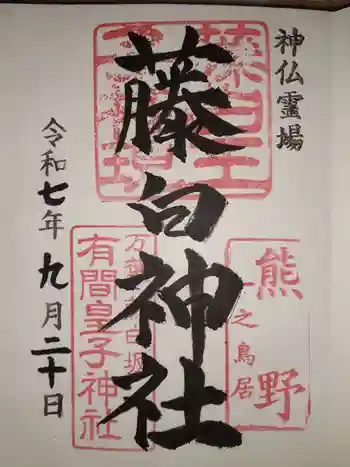 神仏霊場
藤白神社
令和七年九月二十日
熊野
一之鳥居
有間皇子神社